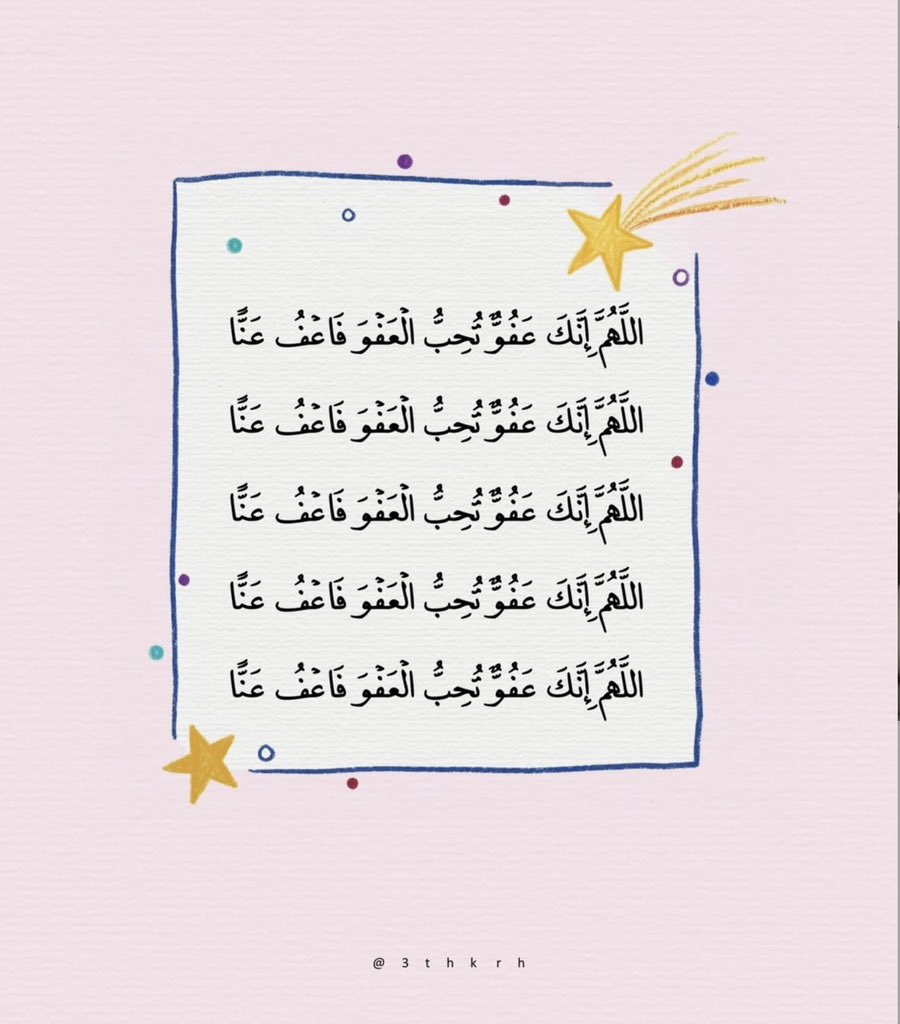 اللَّهُمَّ إِنَّكَ عَفُوٌّ تُحِبُّ الْعَفْوَ فَاعْفُ عَنَّا
اللَّهُمَّ إِنَّكَ عَفُوٌّ تُحِبُّ الْعَفْوَ فَاعْفُ عَنَّا
اللَّهُمَّ إِنَّكَ عَفُوٌّ تُحِبُّ الْعَفْوَ فَاعْفُ عَنَّا
اللَّهُمَّ إِنَّكَ عَفُوٌّ تُحِبُّ الْعَفْوَ فَاعْفُ عَنَّا
اللَّهُمَّ إِنَّكَ عَفُوٌّ تُحِبُّ الْعَفْوَ فَاعْفُ عَنَّا
@3thkrh